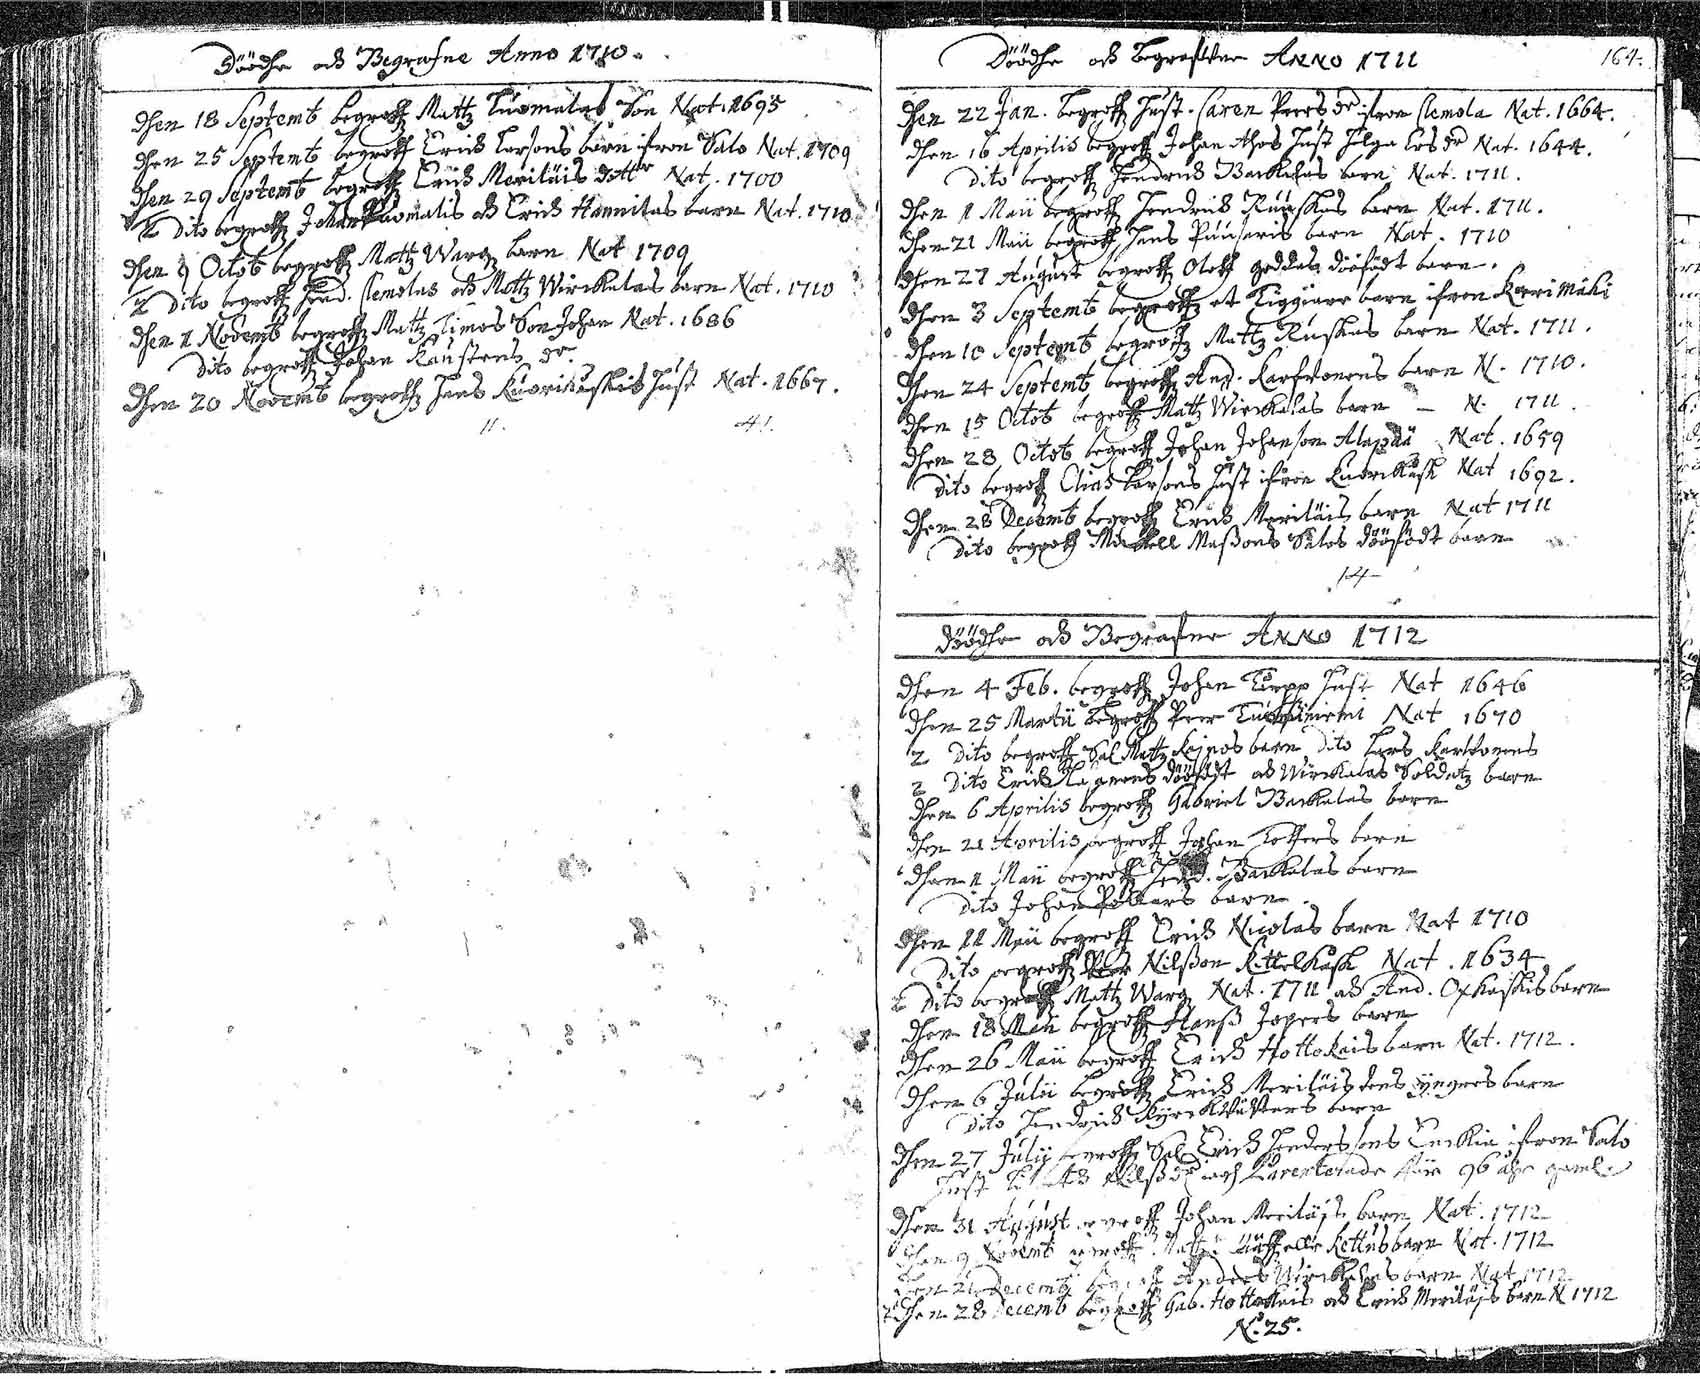 Döödhe och Begrafne Anno 1710.
dhen 18 Septemb begroff Mattz Tuomalas Son Nat. 1695
dhen 25 Septemb begroff Erich Larsons barn ifron Salo Nat. 1709
dhen 29 Septemb begroff Erich Meriläis dotter Nat. 1700
2 Dito begroff Johan Tuomalis och Erich Hannilas barn Nat. 1710
dhen 9 Octob begroff Mattz Warg barn Nat 1709
2 Dito begroff Hend. Clemolas och Mattz Wirckalas barn Nat. 1710
dhen 1 Novemb begroff Mattz Timos Son Johan Nat. 1686
Dito begroff Johan Kaustens dr.
dhen 20 Novemb begroff Hans Kuorikoskis Hust Nat. 1667.
11. 41.
Döödhe och begrafne Anno 1711
164.
dhen 22 Jan. begroff Hust. Caren Peersdr ifron Clemola Nat. 1664.
dhen 16 Aprilis begroff Johan Ahos Hust Helga Larsdr Nat. 1644.
Dito begroff Hendrich Backalas barn Nat. 1711.
dhen 1 Maii begroff Hendrich Ruuskas barn Nat. 1711.
dhen 21 Maii begroff Hans barn Nat. 1710
dhen 27 August begroff Oloff geddas döödfödt barn.
dhen 3 Septemb begroff et Tiggiare barn ifron Korrimäki
dhen 10 Septemb begroff Mattz Ruskas barn Nat. 1711.
dhen 24 Septemb begroff And. Karfvonens barn N. 1710.
dhen 15 Octob begroff Mattz Wirckalas barn — N. 1711.
dhen 28 Octob begroff Johan Johanson Alapää Nat. 1659
Dito begroff Elias Larsons Hust ifron Kuorikosk Nat 1692.
dhen 28 Decemb begroff Erich Meriläis barn Nat 1711
Dito begroff Michell Maßons Salos döödfödt barn
14
Döödhe och Begrafne Anno 1712
dhen 4 Feb. begroff Johan Torpp Hust Nat 1646
dhen 25 Martii begroff Peer Nat 1670
2 Dito begroff Sal Mattz Keinos barn Dito Lars Karttonens
2 Dito Erich döödfödt och Wirckalas Soldatz barn
dhen 6 Aprilis begroff Gabriel Backalas barn
dhen 21 Aprilis begroff Johan Toffers barn
dhen 1 Maii begroff Hend. Backalas barn
Dito Johan barn.
dhen 11 Maii begroff Erich Nicolas barn Nat 1710
Dito begroff Peer Nilßon Kittelkosk Nat. 1634
2 Dito begroff Mattz Warg Nat. 1711 och And. Opkaskis barn
dhen 18 Maii begroff Hanß Jopers barn
dhen 26 Maii begroff Erich Hottokais barn Nat. 1712.
dhen 6 Julii begroff Erich Meriläis dens yngres barn
Dito Hendrich barn
dhen 27 Julii begroff Sal Erich Henderssons Enckia ifron Salo
Hust Nilßdr och 96 åhr gamel
dhen 31 August begroff Johan Meriläis barn Nat. 1712
dhen 9 Novemb begroff Mattz Kettus barn Nat. 1712
dhen 21 Decemb begroff Anders Wirckalas barn Nat 1712
2 dhen 28 Decemb begroff Gab. Hottokais och Erich Meriläis barn N 1712
No. 25.